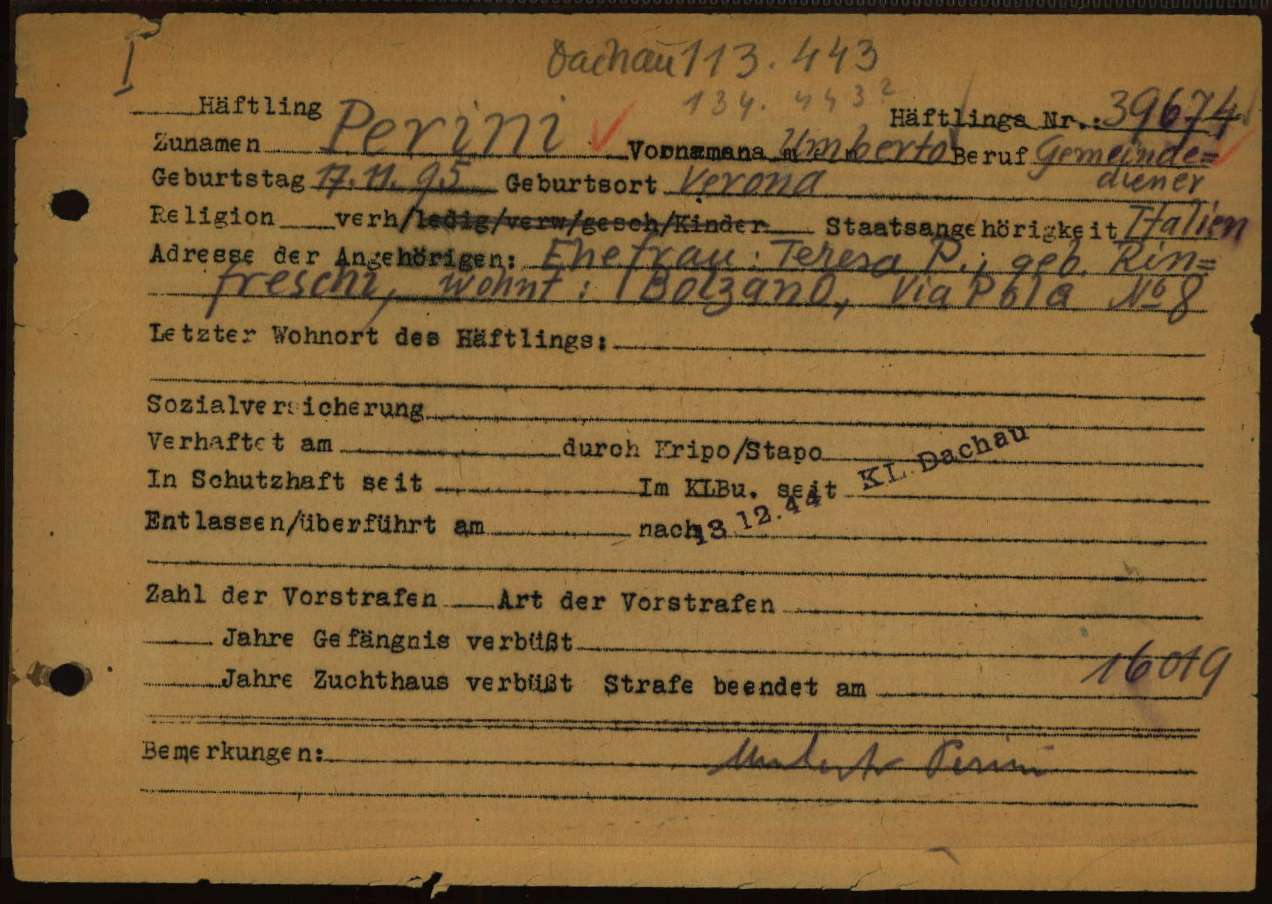 I
Dachau 113.443
134.443?
Häftling
Häftlings Nr.: 39674
Zunamen Perini Umberto Beruf Gemeinde=
diener
Geburtstag 17.11.95 Geburtsort Verona
Religion verh/ledig/verw/gesch/Kinder Staatsangehörigkeit Italien
Adresse der Angehörigen: Ehefrau: Teresa P., geb. Rin=
freschi, wohnt: Bolzano, Via Pola No 8
Letzter Wohnort des Häftlings:
Sozialversicherung
Verhaftet am durch Kripo/Stapo
In Schutzhaft seit Im KLBu. seit KL. Dachau
Entlassen/überführt am nach 13.12.44
Zahl der Vorstrafen Art der Vorstrafen
Jahre Gefängnis verbüßt
Jahre Zuchthaus verbüßt Strafe beendet am 16019
Bemerkungen: Umberto Perini